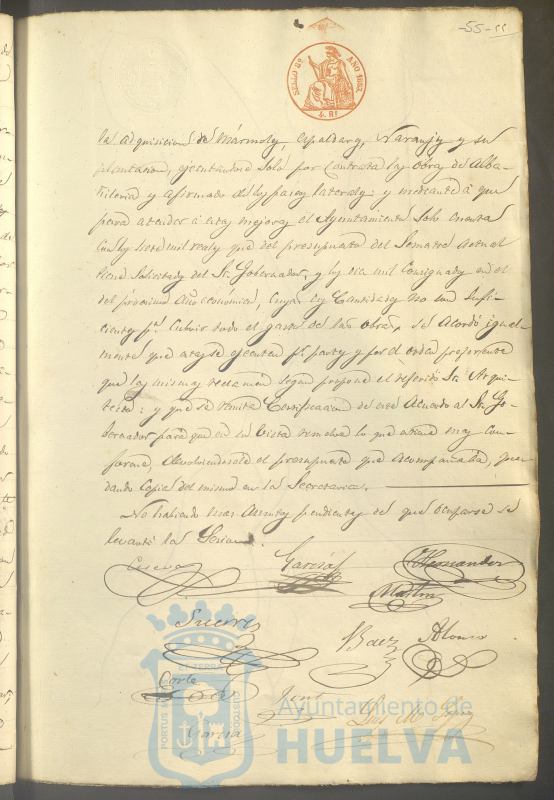 -55-
SELLO 8º AÑO 1862
4 Rs
la adquisicion de Marmoly, espaldary, Naranjy y su
plantacion, ejecutandose solo por contrata las obras de Alba-
ñileria y afirmado de los paseos lateraly: y mediante á que
para atender á estas mejoras el Ayuntamiento solo cuenta
con los siete mil realy que del presupuesto del Semestre actual
tiene solicitados del Sr. Gobernador, y los diez mil consignados en el
del procsimo año económico, cuyas cantidades no son sufi-
cientes pª. cubrir todo el gasto de las obras, se acordó igual-
mente que estas se ejecuten pr. partes y por el orden preferente
que las mismas reclaman segun propone el referido Sr. Arqui-
tecto: y que se remita Certificacion de este Acuerdo al Sr. Go-
bernador para que en su vista resuelva lo que estime mas con-
forme devolviendosele el presupuesto que acompañaba, que-
dando copia del mismo en la Secretaria.
No habiendo mas asuntos pendientes de que ocuparse se
levantó la Sesion.
García Hernandez
Suero Baez Alonso
Corte
Garcia
PORTUS MARIS ET TERRAE CUSTODIA
Ayuntamiento de
HUELVA